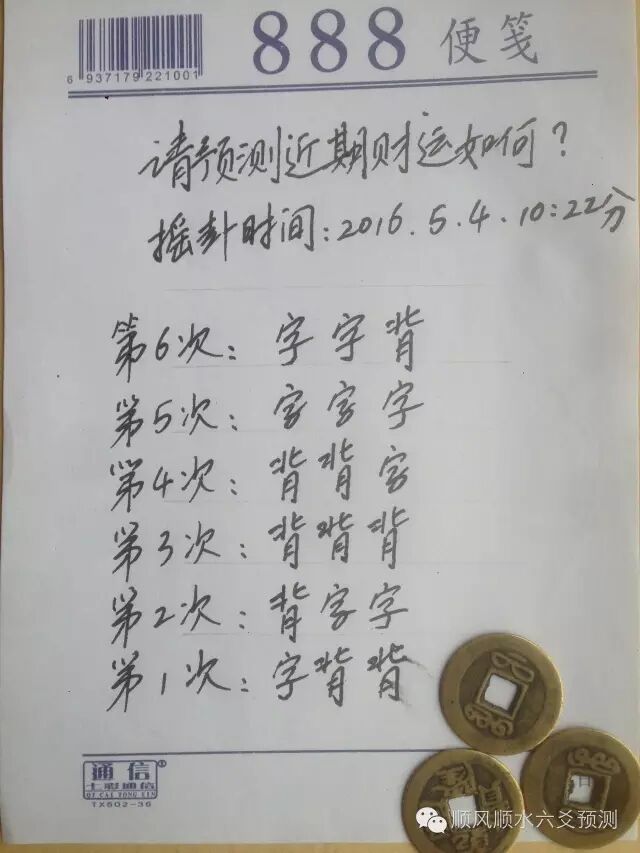 888 便笺
6 937179 221001
请预测近期财运如何?
摇卦时间:2016.5.4.10:22分
第6次: 字字背
第5次: 字字字
第4次: 背背字
第3次: 背背背
第2次: 背字字
第1次: 字背背
通信
七彩通信
QI CAI TONG XIN
TX502-36
顺风顺水六爻预测